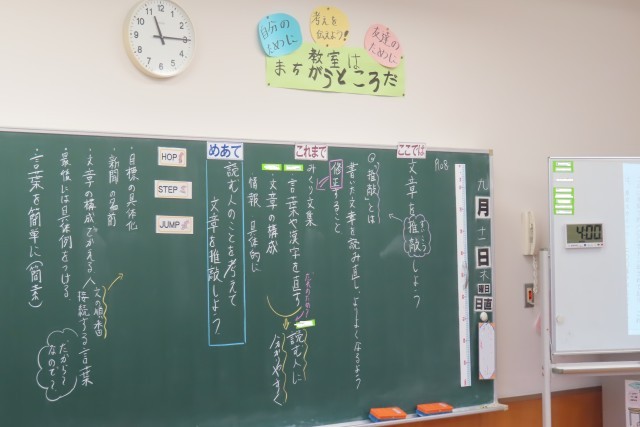 自分の
ために
考えを
伝えよう!
友達の
ために
教室は
まちがうところだ
12
3
6
9
P.108
ここでは
文章を推敲しよう
Q「推敲」とは
書いた文章を読み直し、よりよくなるよう
修正すること
これまで
みくり文集
言葉や漢字を直す
文章の構成
情報 具体的に
だれのため?
読む人に
めあて
読む人のことを考えて
文章を推敲しよう
HOP
STEP
JUMP
・目標の具体化
・新聞の名前
・文章の構成でかえる
文の順番
接続する言葉
だから〜
なので〜
・最後には具体例をつける
・言葉を簡単に(簡素)
九
月
十二
日
木
曜日
日直
4:00